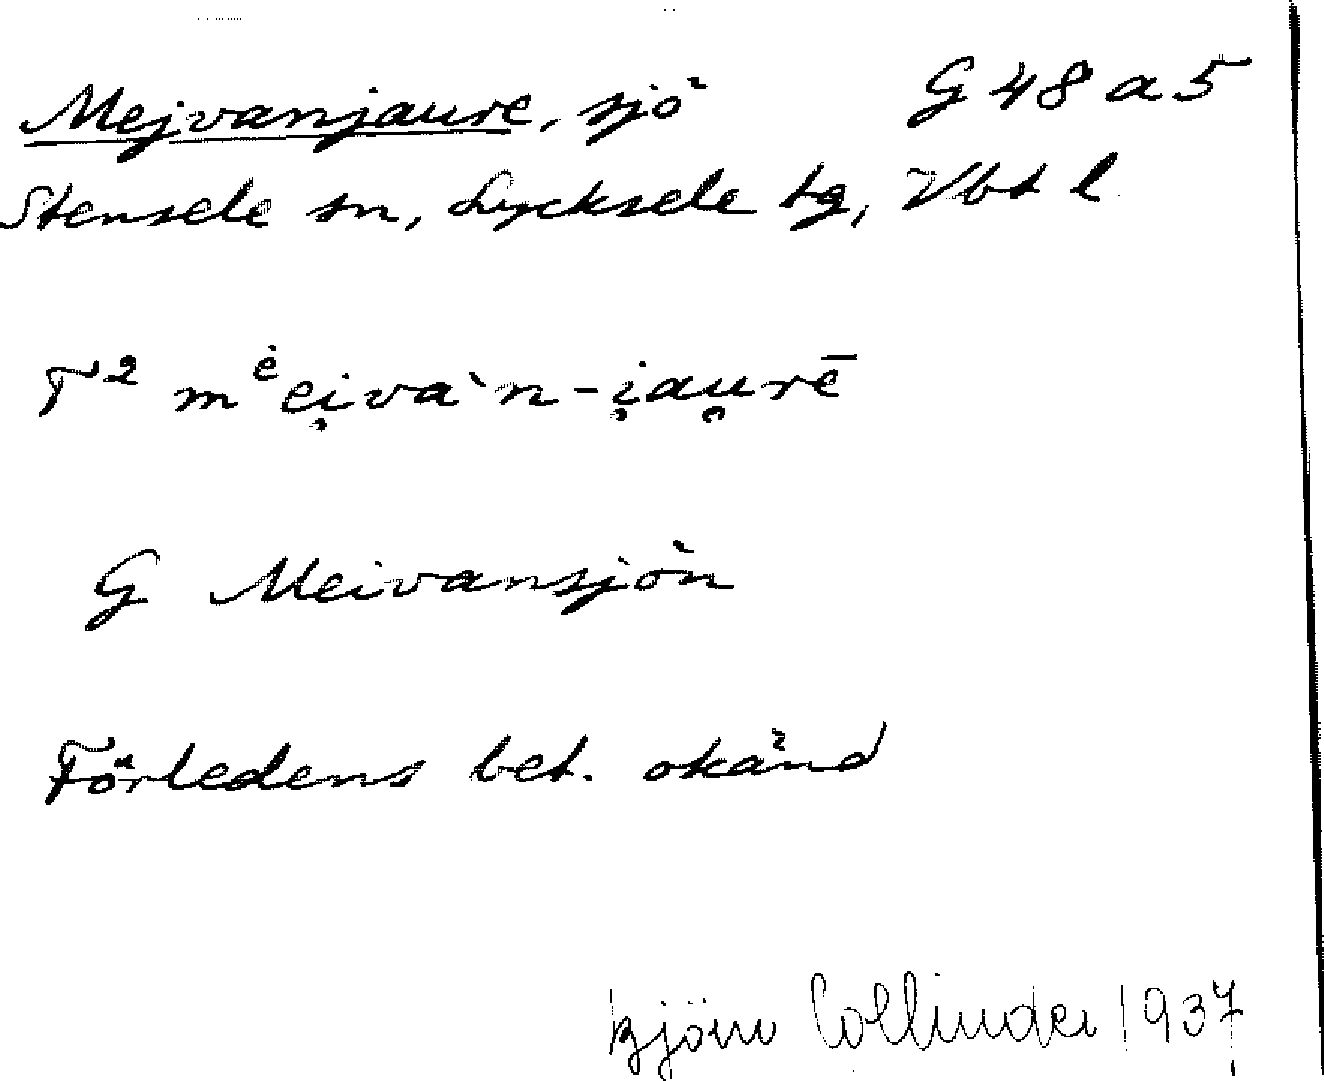 Mejvanjaure, sjö G 48 a 5
Stensele sn, Lycksele tg, Vbt l
T² mᵉ̇ei̯vàn-i̯au̯rē
G Meivansjön
Förledens bet. okänd
Björn Collinder 1937